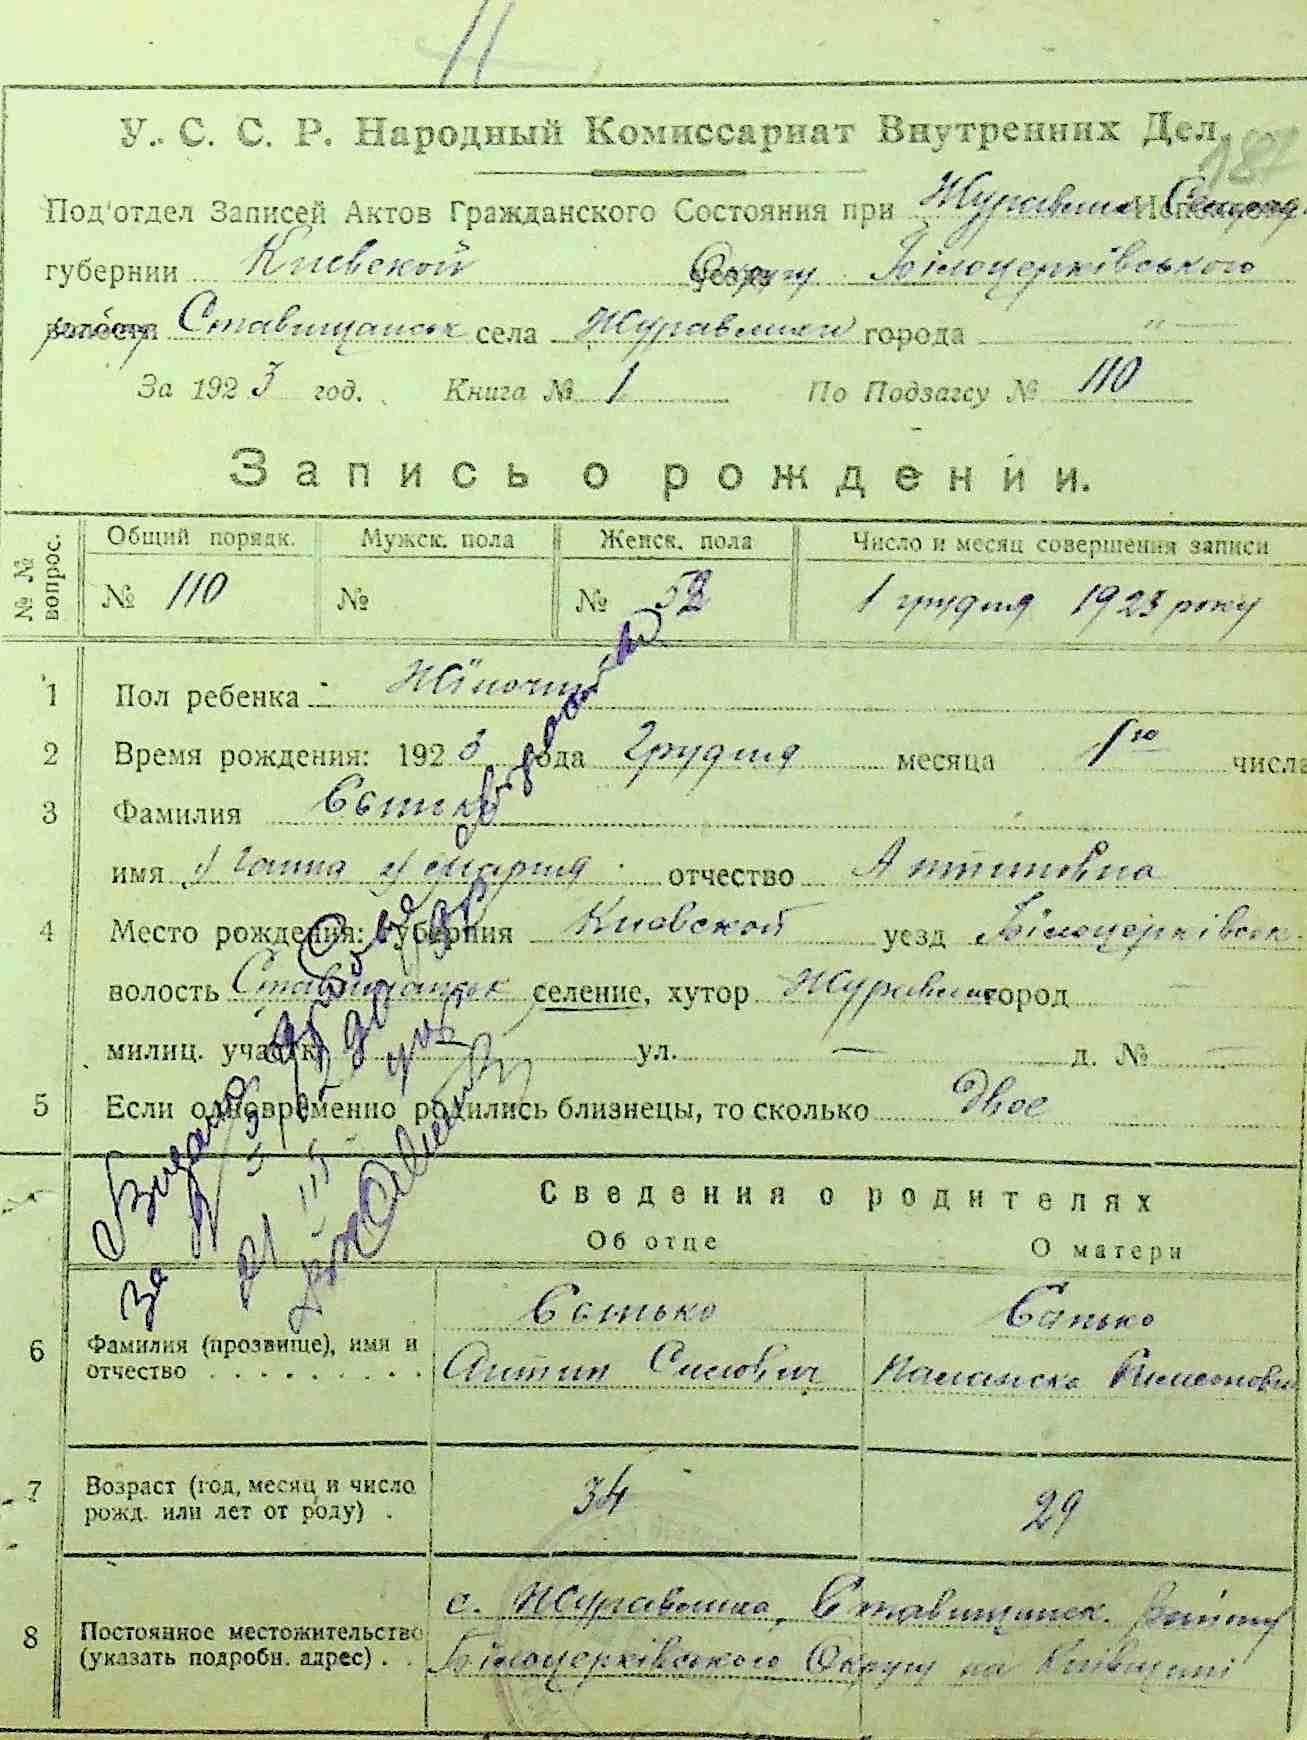 182
У. С. С. Р. Народный Комиссариат Внутренних Дел.
Под'отдел Записей Актов Гражданского Состояния при
губернии Киевской Округу Білоцерківського
Ставищанськ села Журавлихи города „ —
За 1923 год. Книга № 1 По Подзагсу № 110
Запись о рождении.
№ № вопрос.
Общий порядк. Мужск. пола Женск. пола Число и месяц совершения записи
№ 110 № № 52 1 грудня 1923 року
1 Пол ребенка Жіночий
2 Время рождения: 1923 года Грудня месяца 1го числа
3 Фамилия Санько
имя 1) Ганна 2) Мария отчество Антиновна
4 Место рождения: губерния Киевской уезд Білоцерківськ.
волость Ставищанськ селение, хутор город —
милиц. участк ул. — д. № —
5 Если одновременно родились близнецы, то сколько Двое
Сведения о родителях
Об отце О матери
6 Фамилия (прозвище), имя и отчество Санько Санько
Антин
7 Возраст (год, месяц и число рожд. или лет от роду) 34 29
8 Постоянное местожительство (указать подробн. адрес) с. Журавлиха, Ставищанск. району
Білоцерківського Округу на Київщині
Видано
за